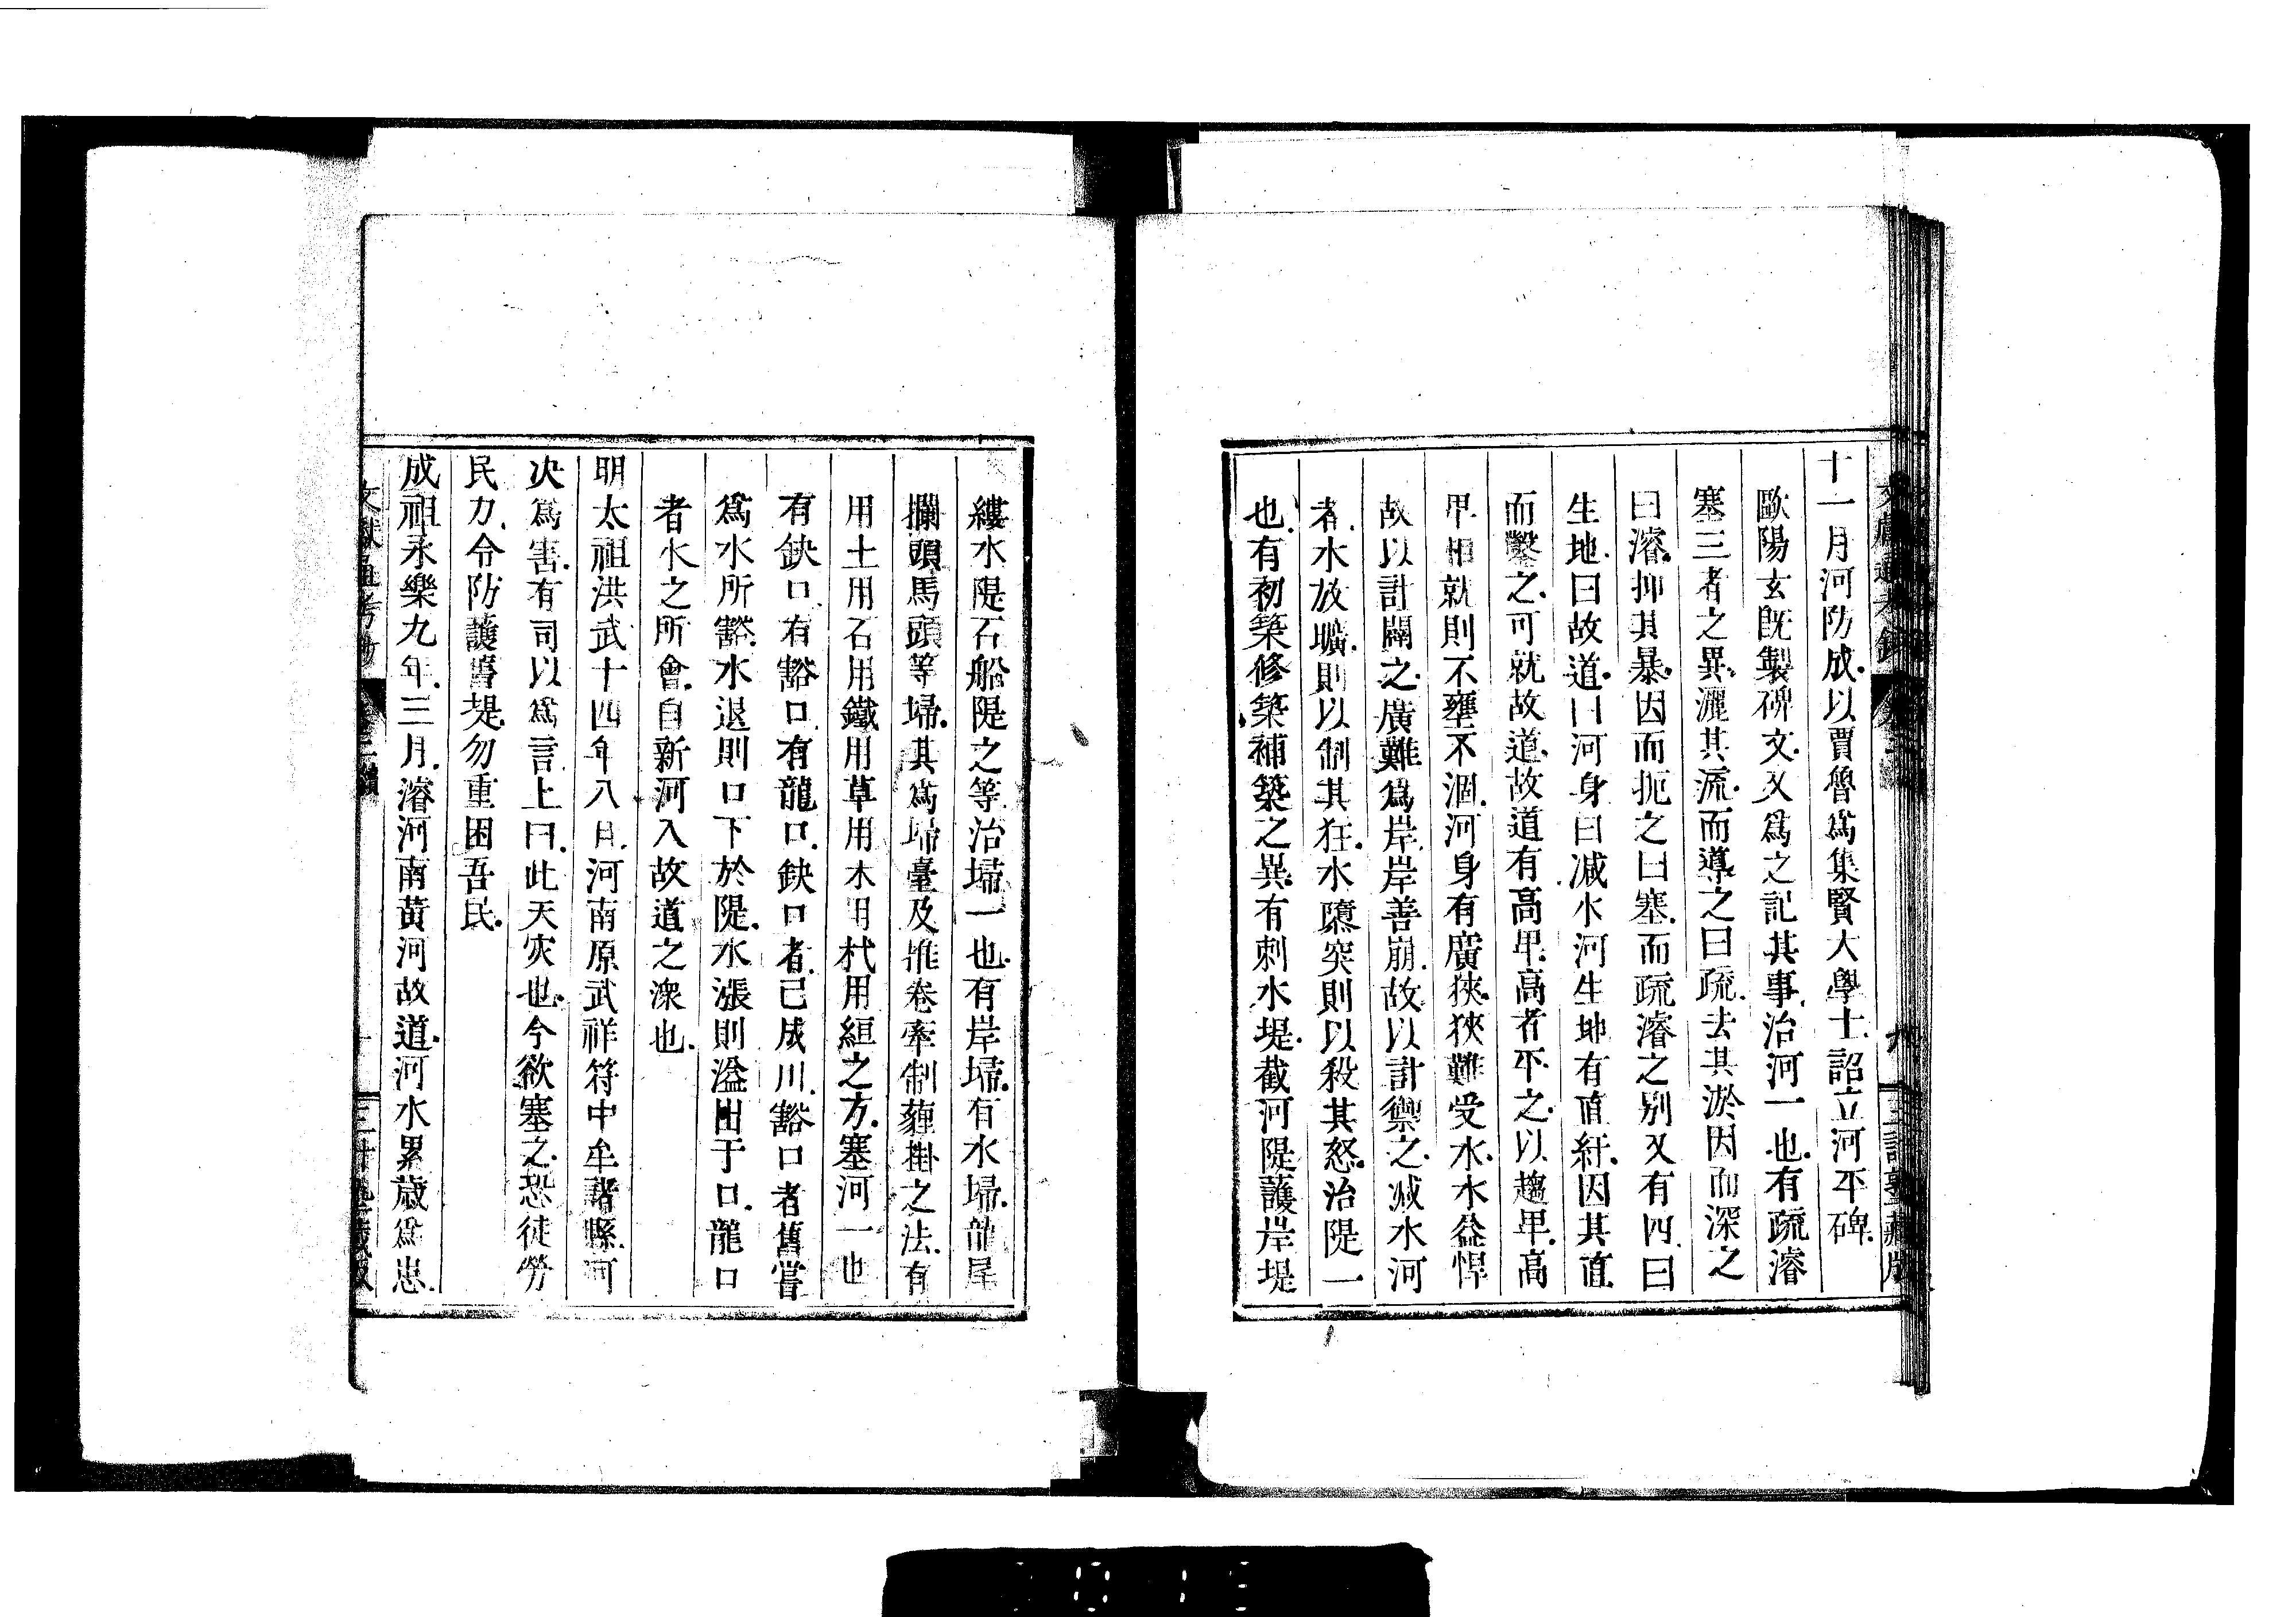 十一月河防成以賈魯爲集賢大學士詔立河平碑
歐陽玄旣製碑文又爲之記其事治河一也有疏濬
塞三者之異灑其流而導之曰疏去其淤因而深之
曰濬抑其暴因而扼之曰塞而疏濬之别又有四曰
生地曰故道曰河身曰减水河生地有直紆因其直
而鑿之可就故道故道有高卑高者平之以趨卑高
卑相就則不壅不涸河身有廣狹狹難受水水益悍
故以計闢之廣難爲岸岸善崩故以計禦之减水河
者水放曠則以制其狂水隳突則以殺其怒治隄一
也有初築修築補築之異有刺水堤截河隄護岸堤
縷水隄石船隄之等治埽一也有岸埽有水埽龍尾
攔頭馬頭等埽其爲埽臺及推卷牽制薶掛之法有
用土用石用鐵用草用木用杙用絙之方塞河一也
有缺口有豁口有龍口缺口者已成川豁口者舊嘗
爲水所豁水退則口下於隄水漲則溢出于口龍口
者水之所會自新河入故道之潨也
明太祖洪武十四年八月河南原武祥符中牟諸縣河
決爲害有司以爲言上曰此天灾也今欲塞之恐徒勞
民力令防護舊堤勿重困吾民
成祖永樂九年三月濬河南黃河故道河水累歲爲患